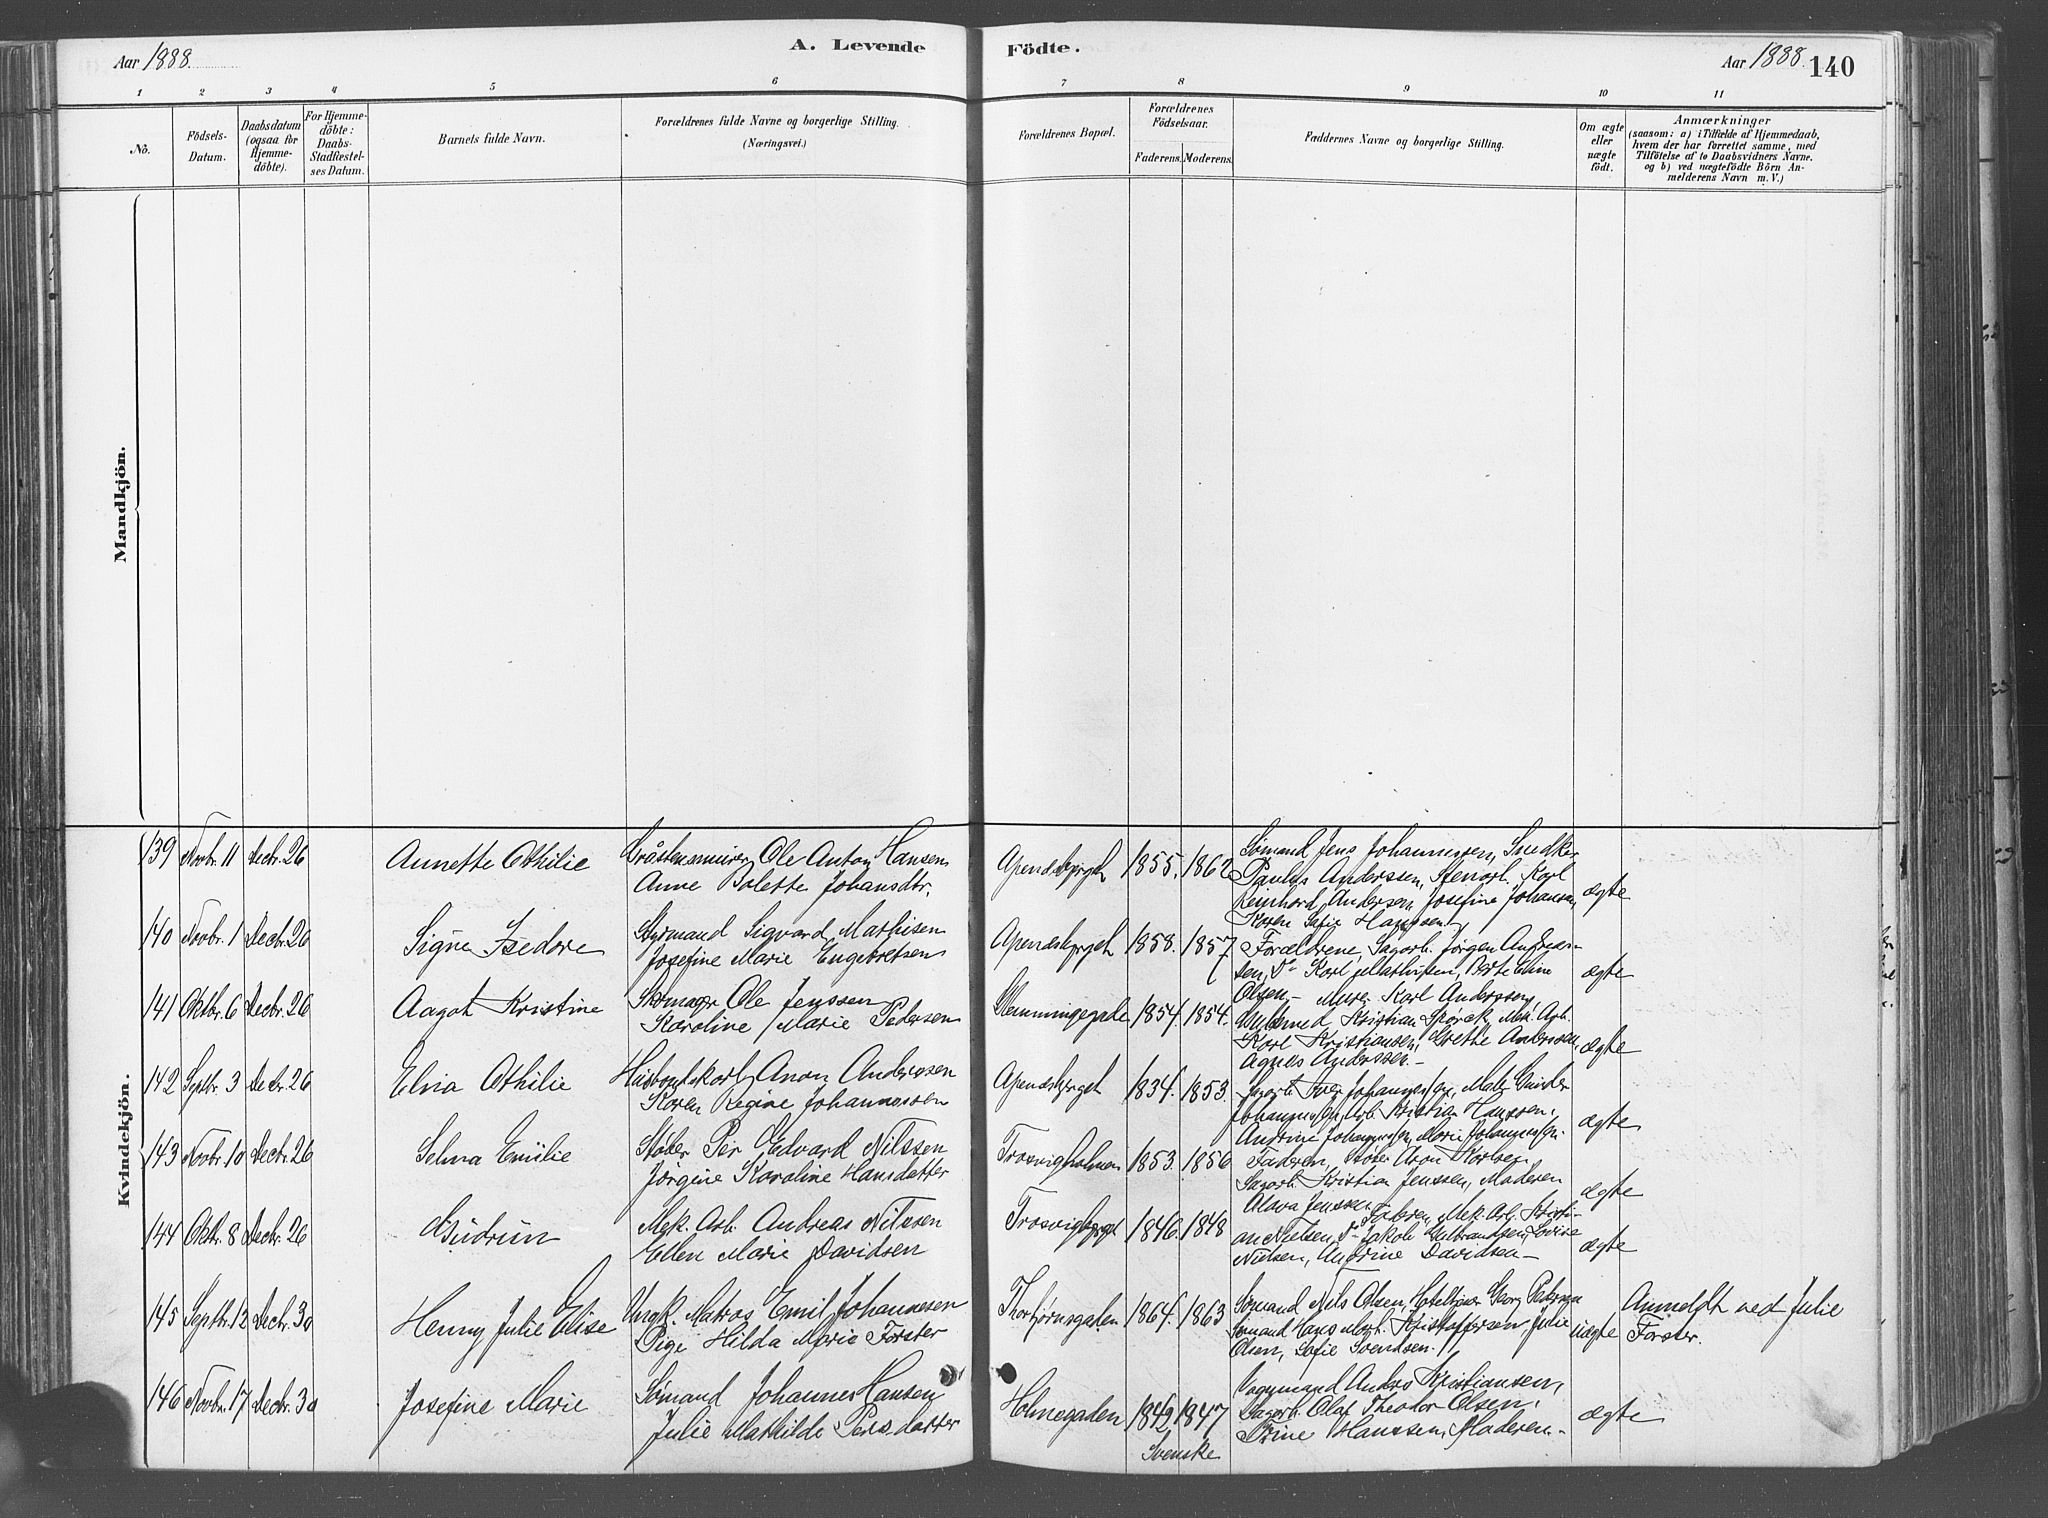 Aar 1888.
A. Levende
Födte.
Aar 1888. 140
1 2 3 4 5 6 7 8 9 10 11
No.
Födsels-
Datum.
Daabsdatum
(ogsaa for
Hjemme-
döbte).
For Hjemme-
döbte:
Daabs-
Stadfæstel-
ses Datum.
Barnets fulde Navn.
Forældrenes fulde Navne og borgerlige Stilling.
(Næringsvei.)
Forældrenes Bopæl.
Forældrenes
Födselsaar.
Faderens. Moderens.
Faddernes Navne og borgerlige Stilling.
Om ægte
eller
uægte
födt.
Anmærkninger
(saasom: a) i Tilfælde af Hjemmedaab,
hvem der har forrettet samme, med
Tilföielse af to Daabsvidners Navne.
og b) ved uægtefödte Börn An-
melderens Navn m. V.)
Mandkjön.
Kvindekjön.
139 Novbr. 11 Decbr. 26 Annette Othilie
Gråstensmurer Ole Anton Hansen
Anne Bolette Johansdtr.
Apenæsbjerget 1855. 1862
Sømand Jens Johannessen, Snedker
Paulus Anderssen, Stenarb. Karl
Reinhard Andersen, Josefine Johansen,
Karen Sofie Hanssen
ægte
140 Novbr. 1 Decbr. 26 Signe Isedore
Styrmand Sigvard Mathisen
Josefine Marie Engebretsen
Apenæsbjerget 1858. 1857
Forældrene, Sagarb. Jørgen Andreas-
sen, Do Karl Mathissen,
Olsen
ægte
141 Oktbr. 6 Decbr. 26 Aagot Kristine
Skomager Ole Jenssen
Karoline Marie Pedersen
Glemmingegade 1854. 1854.
Murer Karl Anderssen,
Kristian Spørck, Mek. Arb.
Karl Kristiansen, Grethe Anderssen,
Agnes Anderssen.
ægte
142 Septbr. 3 Decbr. 26 Elvia Othilie
Aron Anderssen
Karen Regine Johannessen
Apenæsbjerget 1834. 1853.
Sagarb. Iver Johannessen,
Johannessen, Arb. Kristian Hanssen,
Andrine Johannessen, Marie Johannessen.
ægte
143 Novbr. 10 Decbr. 26 Selma Emilie
Støber Per Edvard Nilssen
Jørgine Karoline Hansdatter
Trosvigholmen 1853. 1856
Faderen, Støber Aron Karlsen,
Sagarb. Kristian Jenssen, Moderen
Olava Jenssen
ægte
144 Oktbr. 8 Decbr. 26 Gudrun
Mek. Arb. Andreas Nilssen
Ellen Marie Davidsen
Trosvigbjerget 1846. 1848
Faderen, Mek. Arb. Kristi-
an Nielsen, Do Jakob Gulbrandsen, Lovise
Nielsen, Andrine Davidsen
ægte
145 Septbr. 12 Decbr. 30 Henny Julie Elise
Ungk. Matros Emil Johannesen
Pige Hilda Marie Forster
Thorbjørnsgaden 1864. 1863
Sømand Nils Olsen, Georg Pedersen
Sømand Hans Kristoffersen, Julie
Olsen, Sofie Svendsen.
Uægte
Anmeldt ved Julie
Forster.
146 Novbr. 17 Decbr. 30 Josefine Marie
Sømand Johannes Hansen
Julie Mathilde Persdatter
Holmegaden 1849. 1847
Svenske
Vognmand Anders Kristiansen,
Sagarb. Olaf Theodor Olsen,
Trine Hanssen, Moderen
ægte